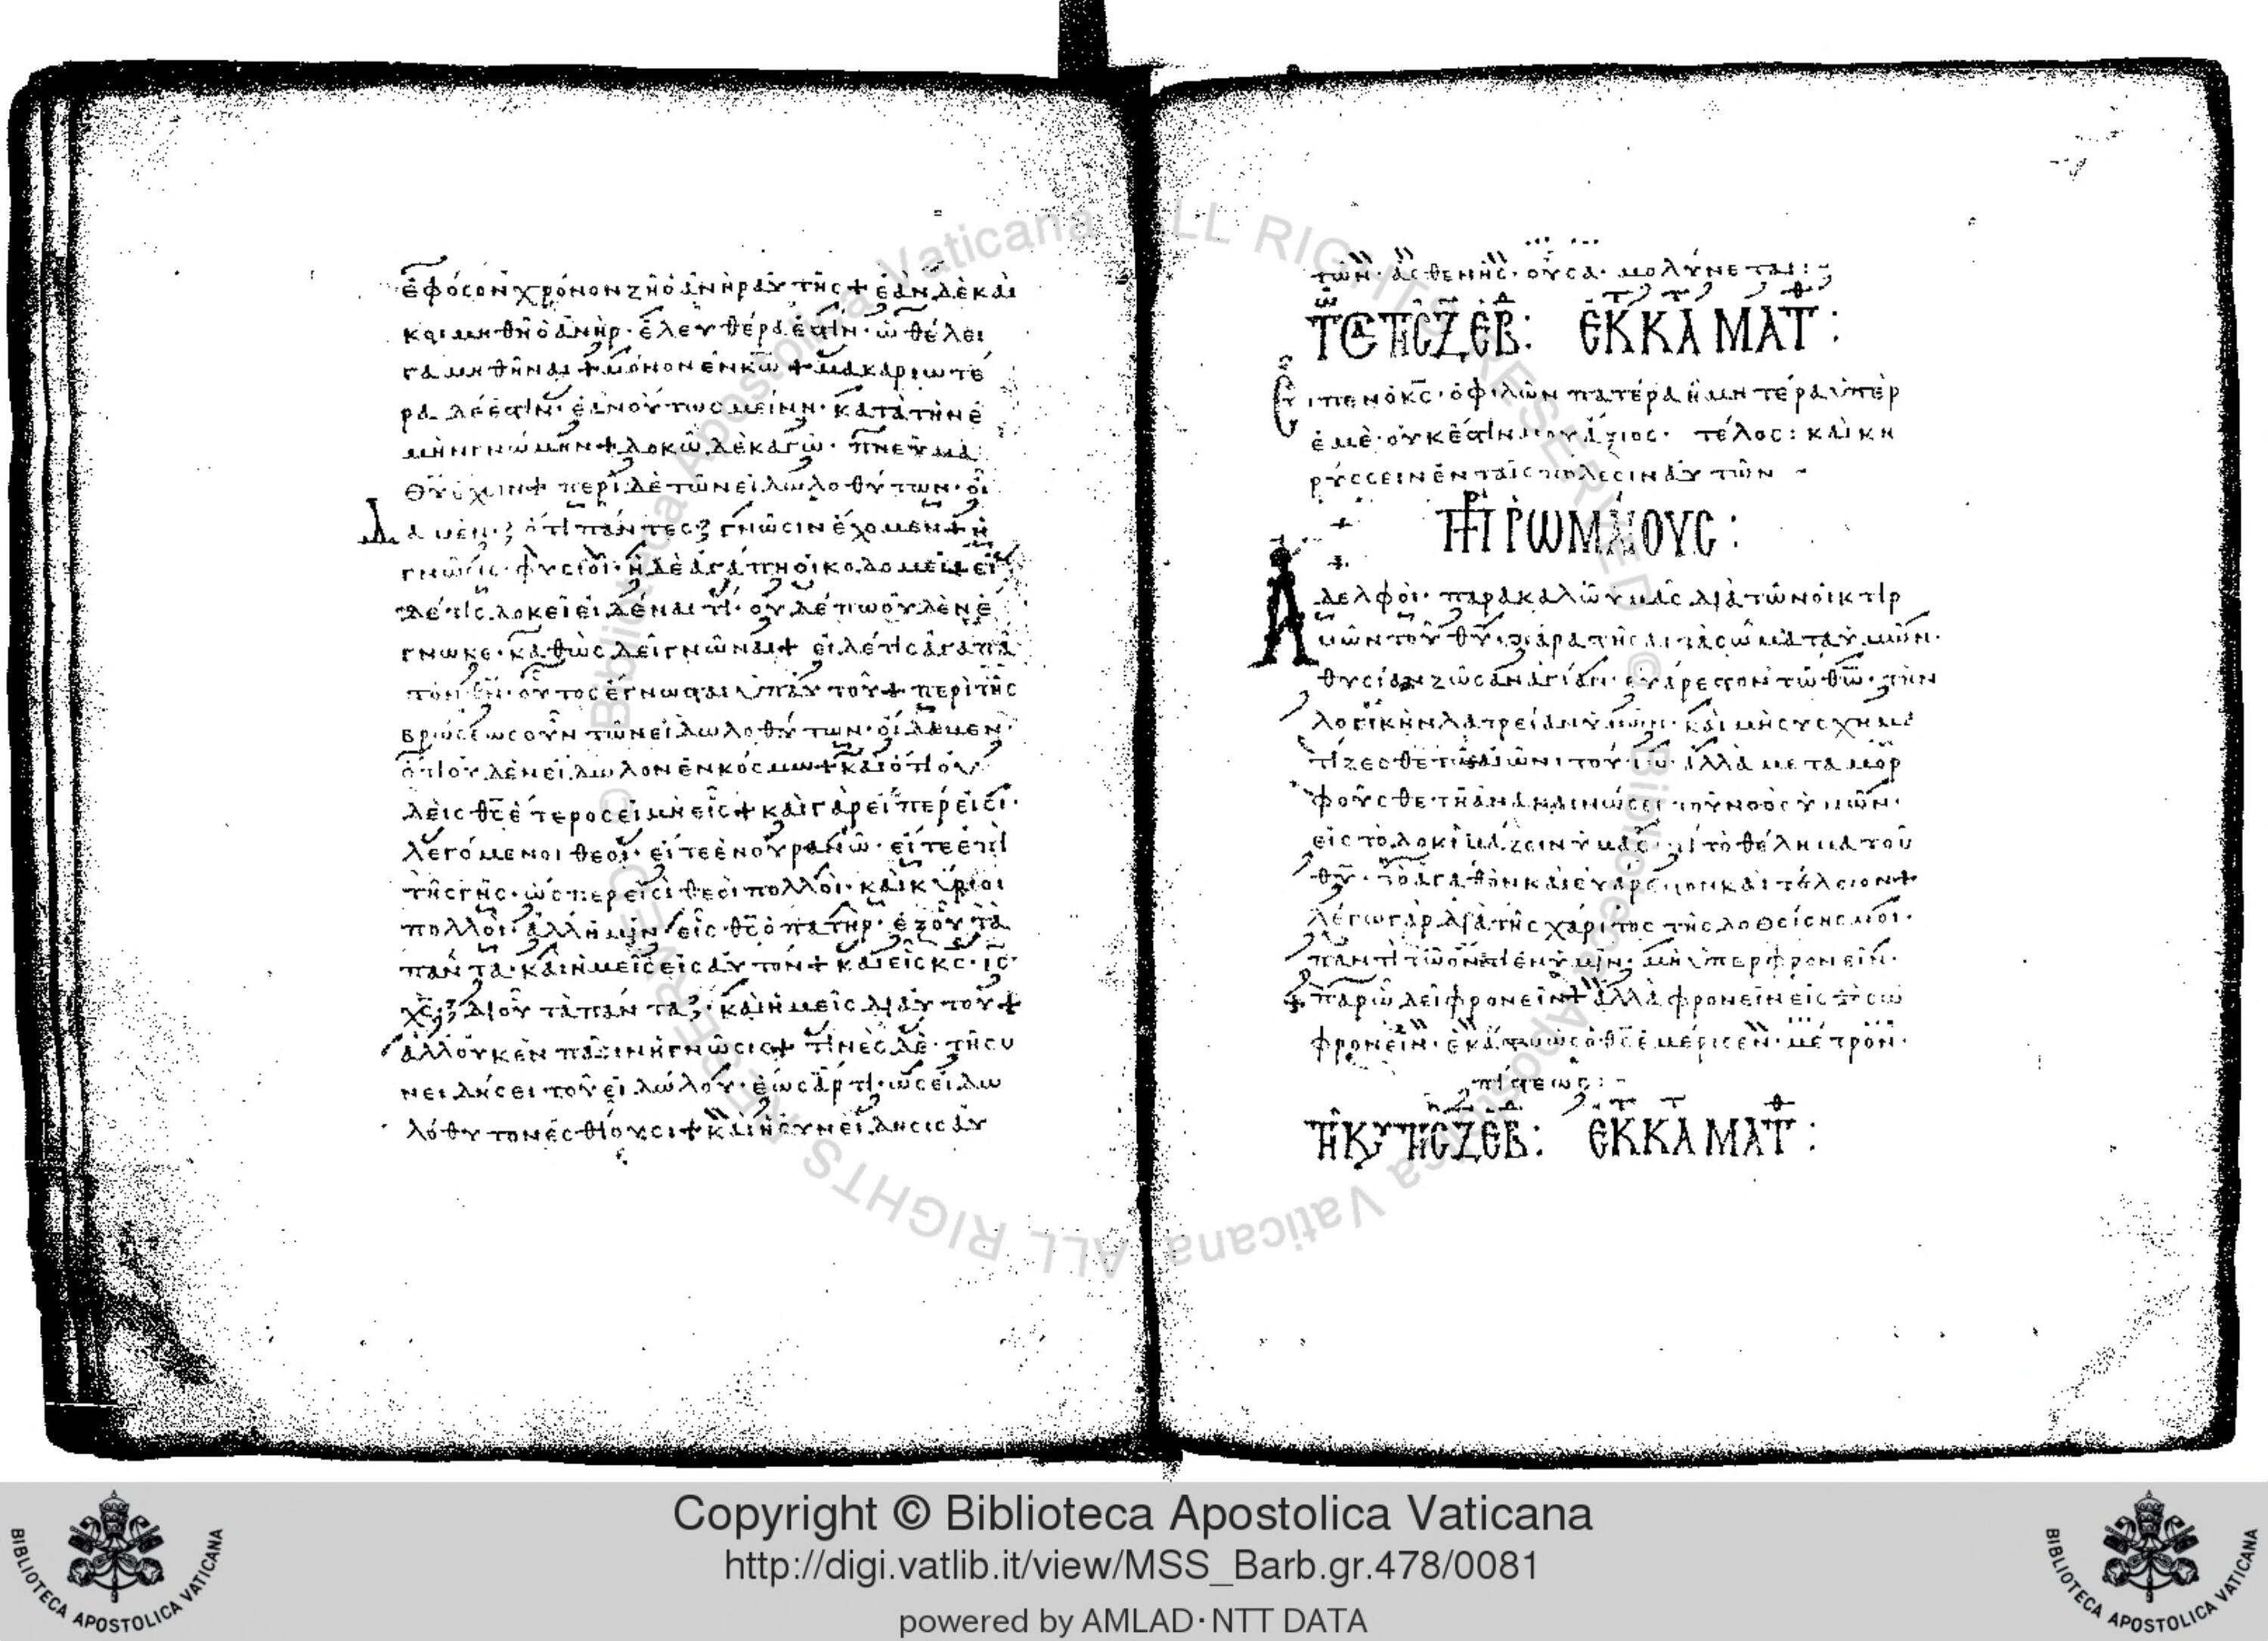 ἐφόσον χρόνον ζῆ ὁ ἀνὴρ αὐτῆς + ἐὰν δὲ καὶ
κοιμηθῆ ὁ ἀνὴρ· ἐλευθέρα ἐστὶν· ὦ θέλει
γαμηθῆναι + μόνον ἐν κ̅ω̅ + μακαριωτέ
ρα δέ ἐστιν· ἐὰν οὕτως μείνη· κατὰ τὴν ἐ
μὴν γνώμην + δοκῶ δὲ καγὼ· πνεῦμα
θ̅υ̅ ἔχειν + περὶ δὲ τῶν εἰδωλοθύτων· οἴ
δαμεν· ὅτι πάντες γνῶσιν ἔχομεν + ἡ
γνῶσις· φυσιοῖ· ἡ δὲ ἀγάπη οἰκοδομεῖ + εἴ
δέ τίς δοκεῖ εἰδέναι τί· οὐδέπω οὐδὲν ἔ
γνωκε· καθὼς δεῖ γνῶναι + εἰ δέ τίς ἀγαπᾶ
τὸν θ̅ν̅· οὗτος ἔγνωσται ὑπ' αὐτοῦ + περὶ τῆς
βρώσεως οὖν τῶν εἰδωλοθύτων· οἴδαμεν·
ὅτι οὐδὲν εἴδωλον ἐν κόσμω + καὶ ὅτι οὐ
δεὶς θ̅ς̅ ἕτερος εἰ μὴ εἷς + καὶ γὰρ εἴπερ εἰσὶ·
λεγόμενοι θεοὶ· εἴτε ἐν οὐρανῶ· εἴτε ἐπὶ
τῆς γῆς· ὥσπερ εἰσὶ θεοὶ πολλοὶ· καὶ κύριοι
πολλοὶ· ἀλλ' ἡμῖν εἷς θ̅ς̅ ὁ πατὴρ· ἐξ οὗ τὰ
πάντα· καὶ ἡμεῖς εἰς αὐτὸν + καὶ εἷς κ̅ς̅· ι̅ς̅
χ̅ς̅· δι' οὗ τὰ πάντα· καὶ ἡμεῖς δι' αὐτοῦ +
ἀλλ' οὐκ ἐν πᾶσιν ἡ γνῶσις + τινὲς δὲ· τῆ συ
νειδήσει τοῦ εἰδώλου· ἕως ἄρτι· ὡς εἰδω
λόθυτον ἐσθίουσι + καὶ ἡ συνείδησις αὐ
τῶν· ἀσθενὴς· οὖσα· μολύνεται:
Εἶπεν ὁ κ̅ς̅· ὁ φιλῶν πατέρα ἢ μητέρα ὑπὲρ
ἐμὲ· οὐκ ἔστιν μου ἄξιος· τέλος: καὶ κη
ρύσσειν ἐν ταῖς πόλεσιν αὐτῶν
Ἀδελφοὶ· παρακαλῶ ὑμᾶς διὰ τῶν οἰκτιρ
μῶν τοῦ θ̅υ̅· παραστῆσαι τὰ σώματα ὑμῶν·
θυσίαν ζῶσαν ἁγίαν· εὐάρεστον τῶ θ̅ω̅· τὴν
λογικὴν λατρείαν ὑμῶν· καὶ μὴ συσχημα
τίζεσθε τῶ αἰῶνι τούτω· ἀλλὰ μεταμορ
φοῦσθε τῆ ἀνακαινώσει τοῦ νοὸς ὑμῶν·
εἰς τὸ δοκιμάζειν ὑμᾶς· τί τὸ θέλημα τοῦ
θ̅υ̅· τὸ ἀγαθὸν καὶ εὐάρεστον καὶ τέλειον +
λέγω γὰρ διὰ τῆς χάριτος τῆς δοθείσης μοι·
παντὶ τῶ ὄντι ἐν ὑμῖν· μὴ ὑπερφρονεῖν·
παρ' ὧ δεῖ φρονεῖν + ἀλλὰ φρονεῖν εἰς τὸ σω
φρονεῖν· ἑκάστω ὡς ὁ θ̅ς̅ ἐμέρισεν· μέτρον·
πίστεως:
Copyright © Biblioteca Apostolica Vaticana
http://digi.vatlib.it/view/MSS_Barb.gr.478/0081
powered by AMLAD·NTT DATA